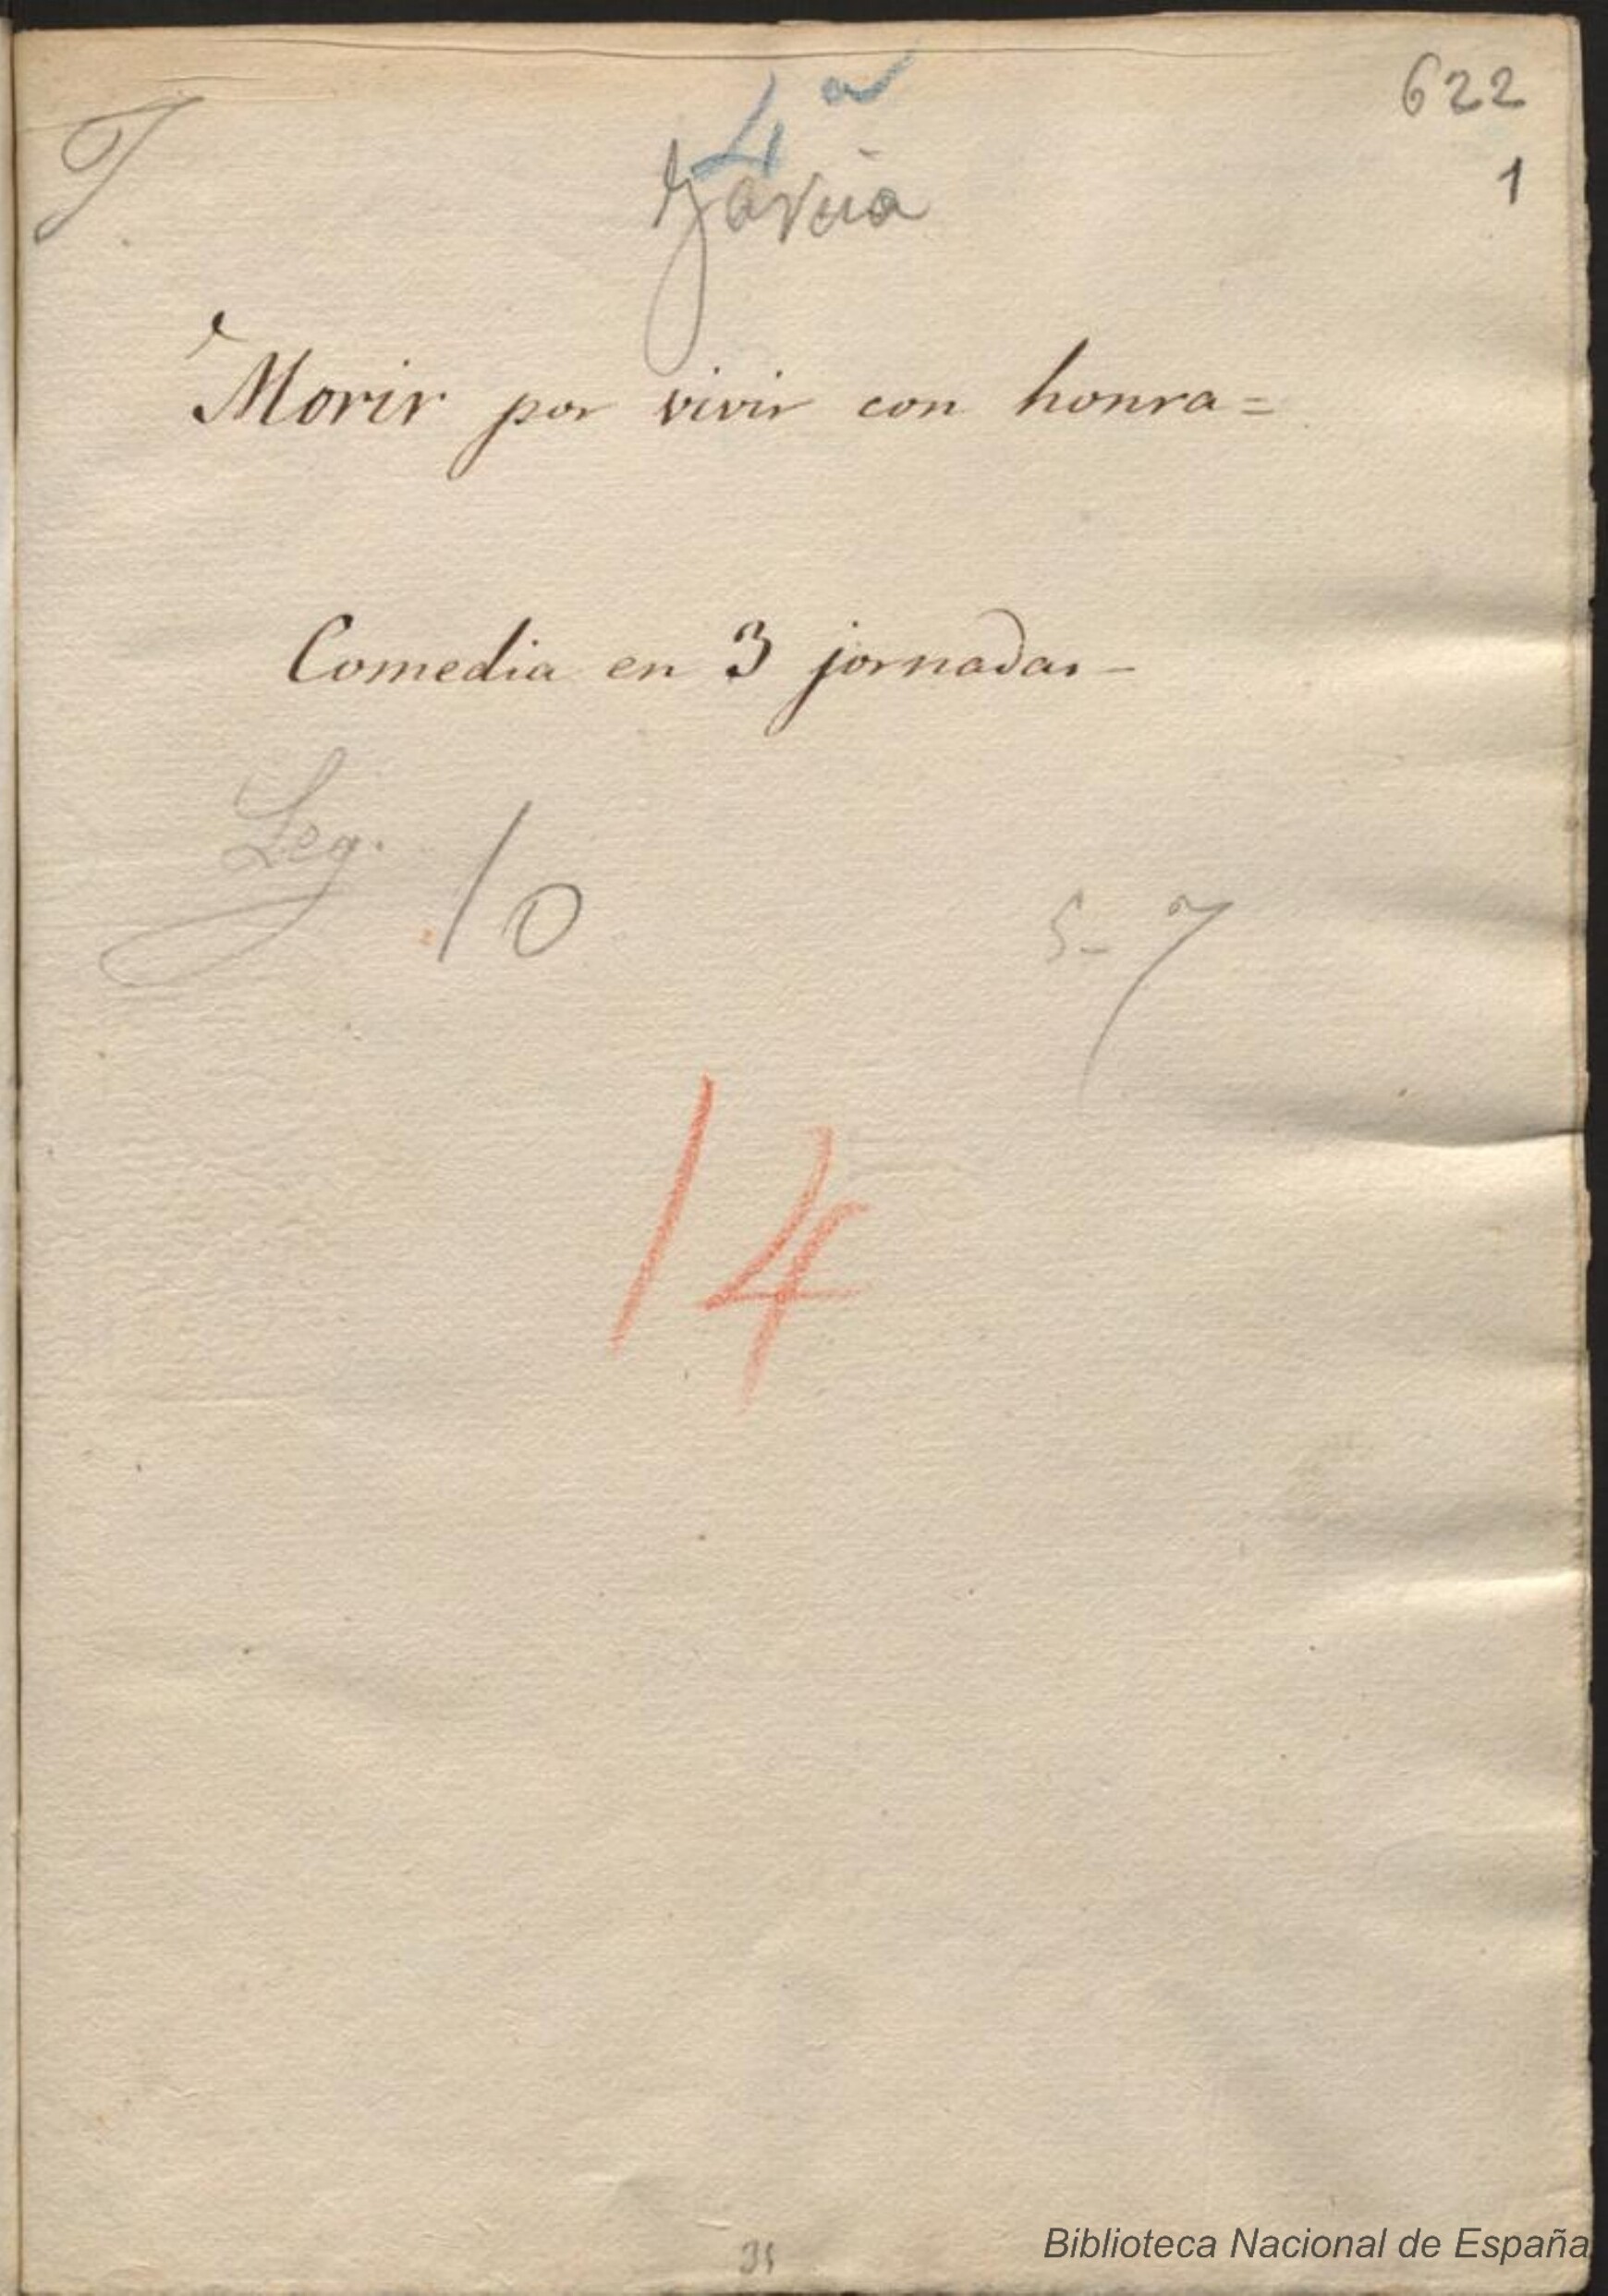 622
4ª
1
García
Morir por vivir con honra=
Comedia en 3 jornadas-
Leg. 10
5-7
14
Biblioteca Nacional de España